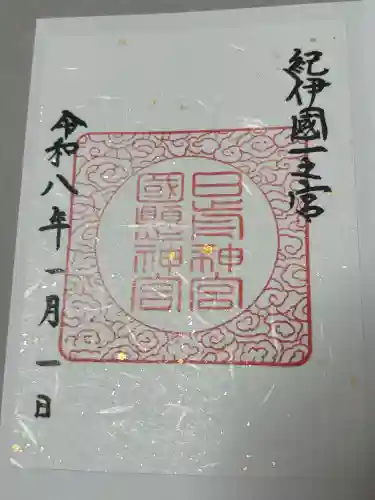 紀伊國一之宮
日前神宮
國懸神宮
令和八年一月一日